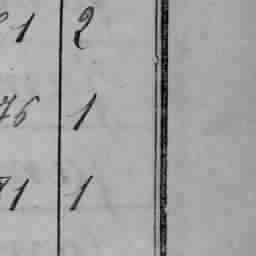 1 2
76 1
71 1